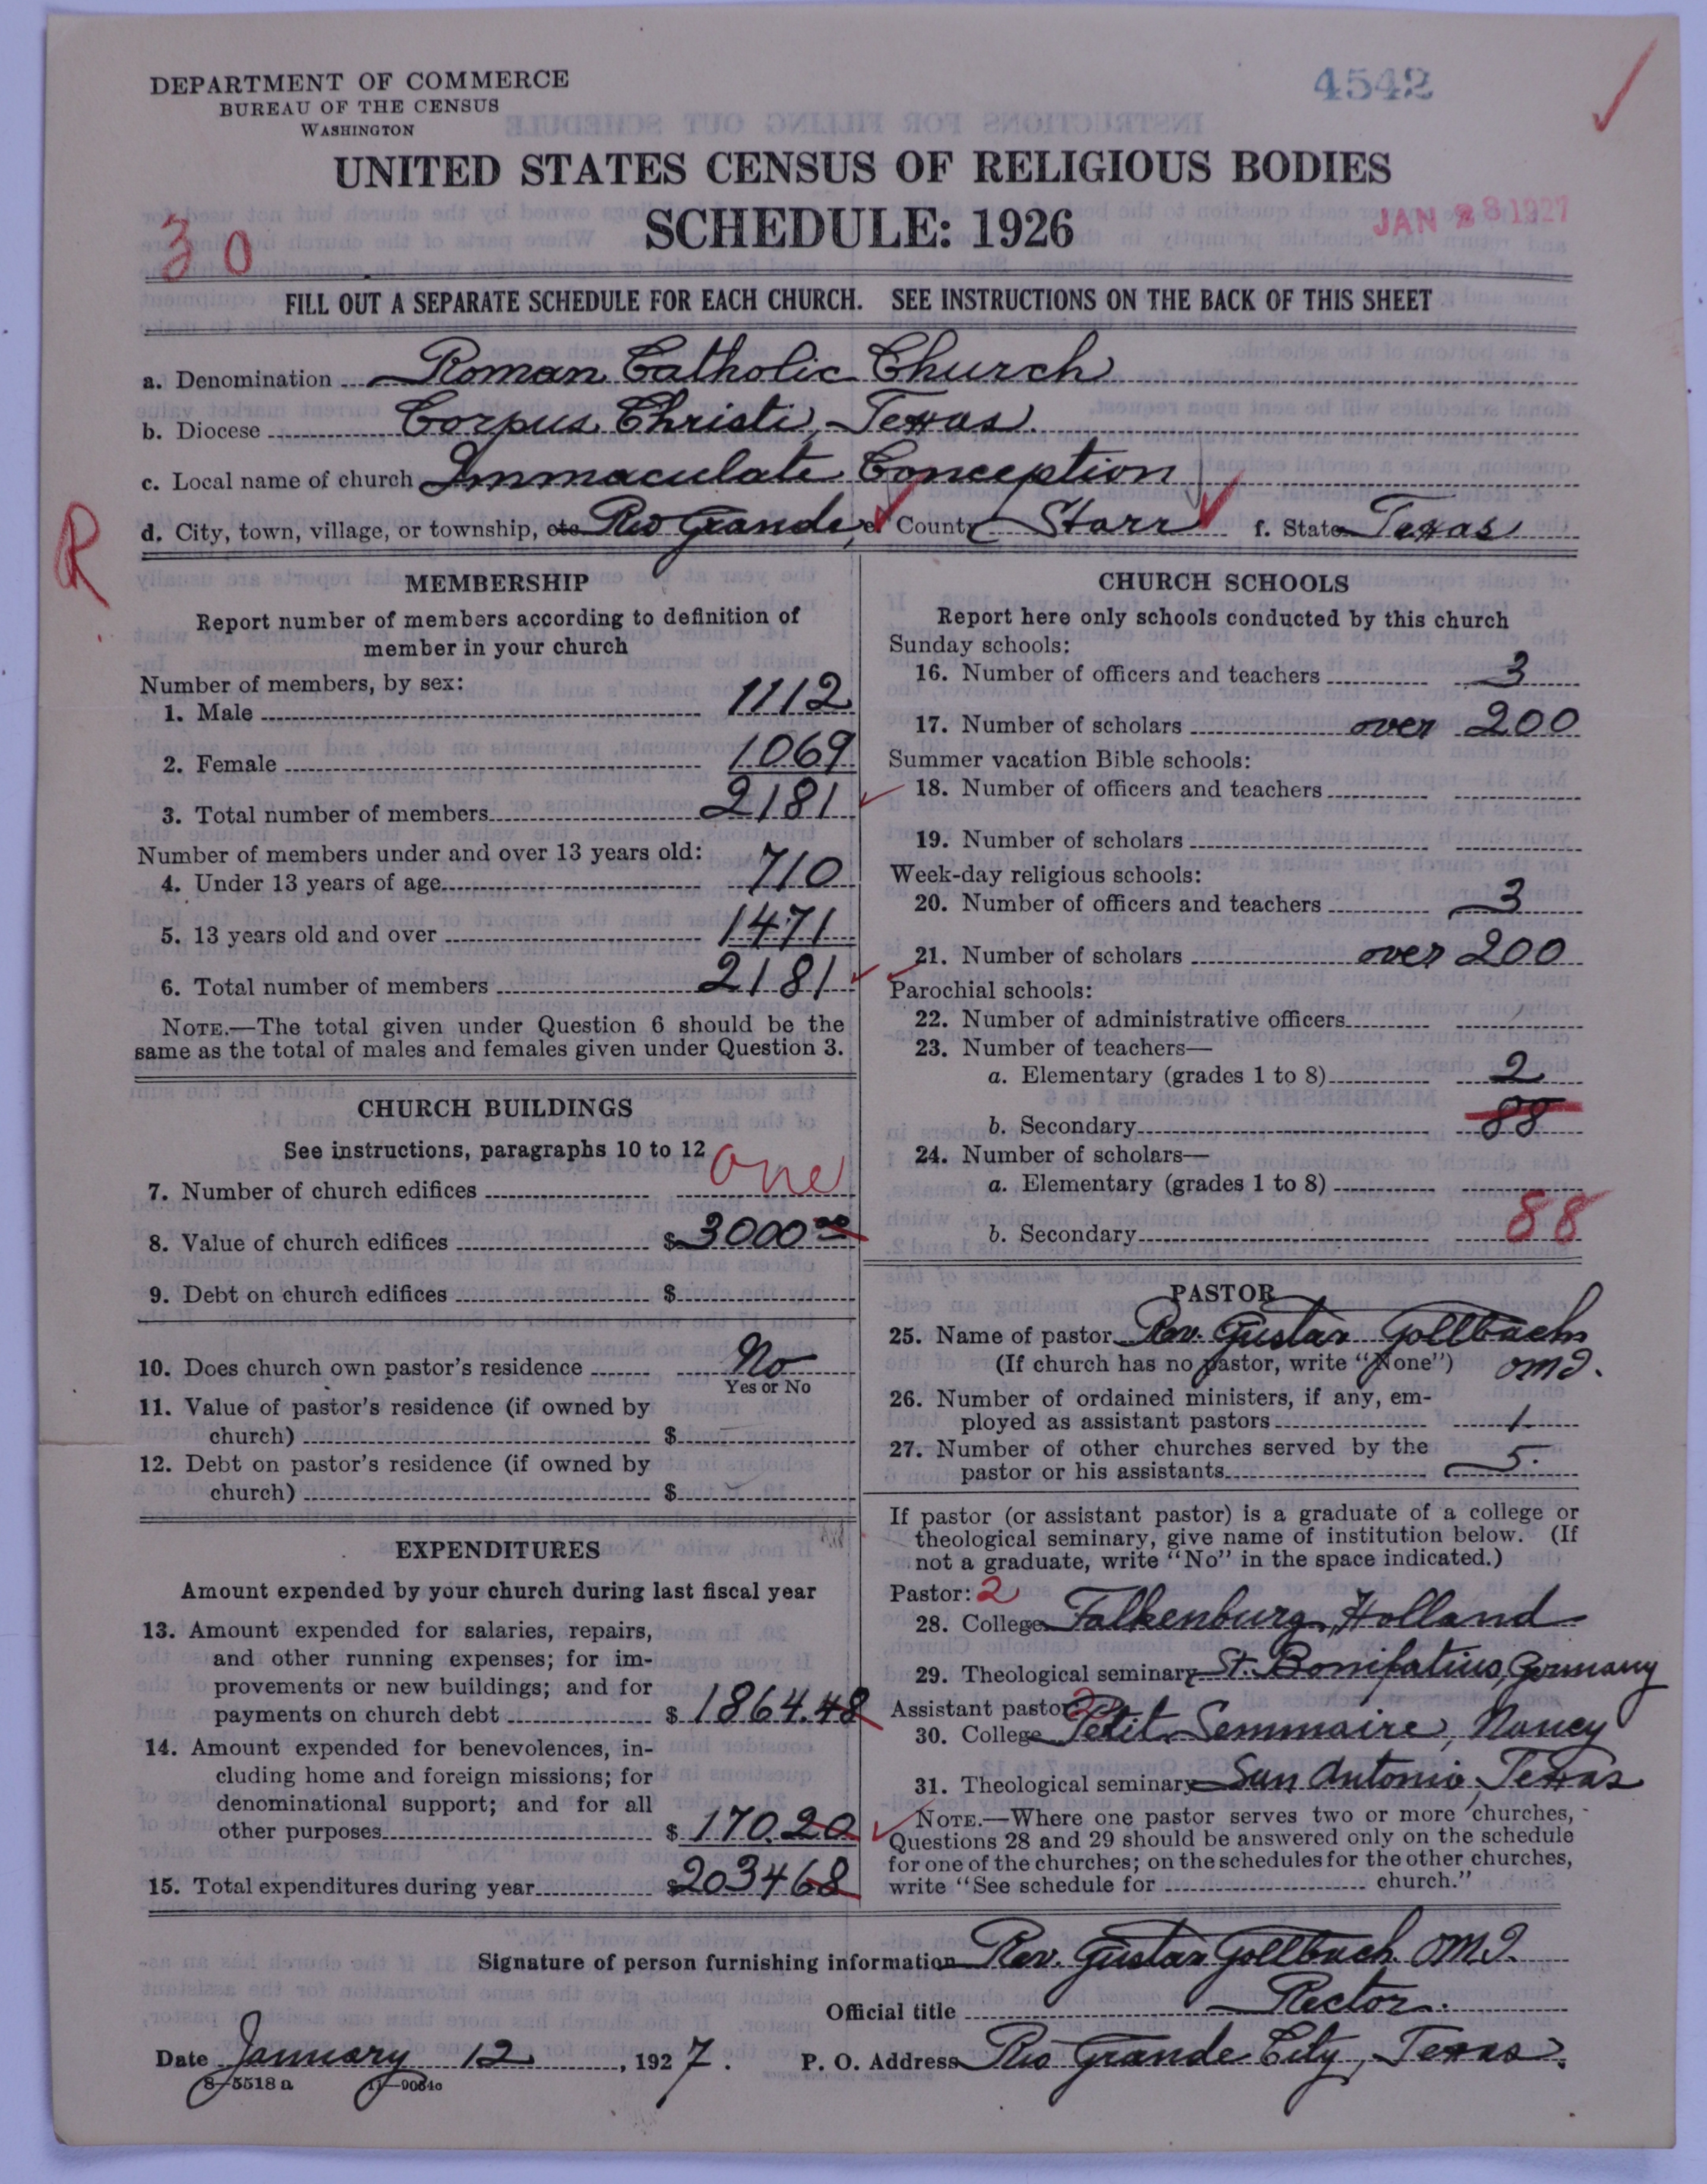 DEPARTMENT OF COMMERCE
BUREAU OF THE CENSUS
WASHINGTON
4542
UNITED STATES CENSUS OF RELIGIOUS BODIES
SCHEDULE: 1926
JAN 28 1927
30
FILL OUT A SEPARATE SCHEDULE FOR EACH CHURCH. SEE INSTRUCTIONS ON THE BACK OF THIS SHEET
a. Denomination Roman Catholic Church
b. Diocese Corpus Christi, Texas.
c. Local name of church Immaculate Conception
d. City, town, village, or township, etc Rio Grande, e. County Starr f. State Texas
R
MEMBERSHIP
Report number of members according to definition of
member in your church
Number of members, by sex:
1. Male 1112
2. Female 1069
3. Total number of members 2181
Number of members under and over 13 years old:
4. Under 13 years of age 710
5. 13 years old and over 1471
6. Total number of members 2181
NOTE.—The total given under Question 6 should be the
same as the total of males and females given under Question 3.
CHURCH BUILDINGS
See instructions, paragraphs 10 to 12
7. Number of church edifices one
8. Value of church edifices $3000 00
9. Debt on church edifices $
10. Does church own pastor's residence No
Yes or No
11. Value of pastor's residence (if owned by
church) $
12. Debt on pastor's residence (if owned by
church) $
EXPENDITURES
Amount expended by your church during last fiscal year
13. Amount expended for salaries, repairs,
and other running expenses; for im-
provements or new buildings; and for
payments on church debt $ 1864.48
14. Amount expended for benevolences, in-
cluding home and foreign missions; for
denominational support; and for all
other purposes $ 170.20
15. Total expenditures during year $203468
CHURCH SCHOOLS
Report here only schools conducted by this church
Sunday schools:
16. Number of officers and teachers 3
17. Number of scholars over 200
Summer vacation Bible schools:
18. Number of officers and teachers
19. Number of scholars
Week-day religious schools:
20. Number of officers and teachers 3
21. Number of scholars over 200
Parochial schools:
22. Number of administrative officers
23. Number of teachers—
a. Elementary (grades 1 to 8) 2
b. Secondary 88
24. Number of scholars—
a. Elementary (grades 1 to 8)
b. Secondary 88
PASTOR
25. Name of pastor Rev. Gustav Gollbach
(If church has no pastor, write "None") OMI.
26. Number of ordained ministers, if any, em-
ployed as assistant pastors 1
27. Number of other churches served by the
pastor or his assistants 5.
If pastor (or assistant pastor) is a graduate of a college or
theological seminary, give name of institution below. (If
not a graduate, write "No" in the space indicated.)
Pastor: 2
28. College Falkenburg, Holland
29. Theological seminary St. Bonifatius, Germany
Assistant pastor: 2
30. College Petit Seminaire, Nancy
31. Theological seminary San Antonio, Texas
NOTE.—Where one pastor serves two or more churches,
Questions 28 and 29 should be answered only on the schedule
for one of the churches; on the schedules for the other churches,
write "See schedule for church."
Signature of person furnishing information Rev. Gustav Gollbach OMI.
Official title Rector.
Date January 12, 1927. P. O. Address Rio Grande City, Texas.
8—5518 a 11—9064c